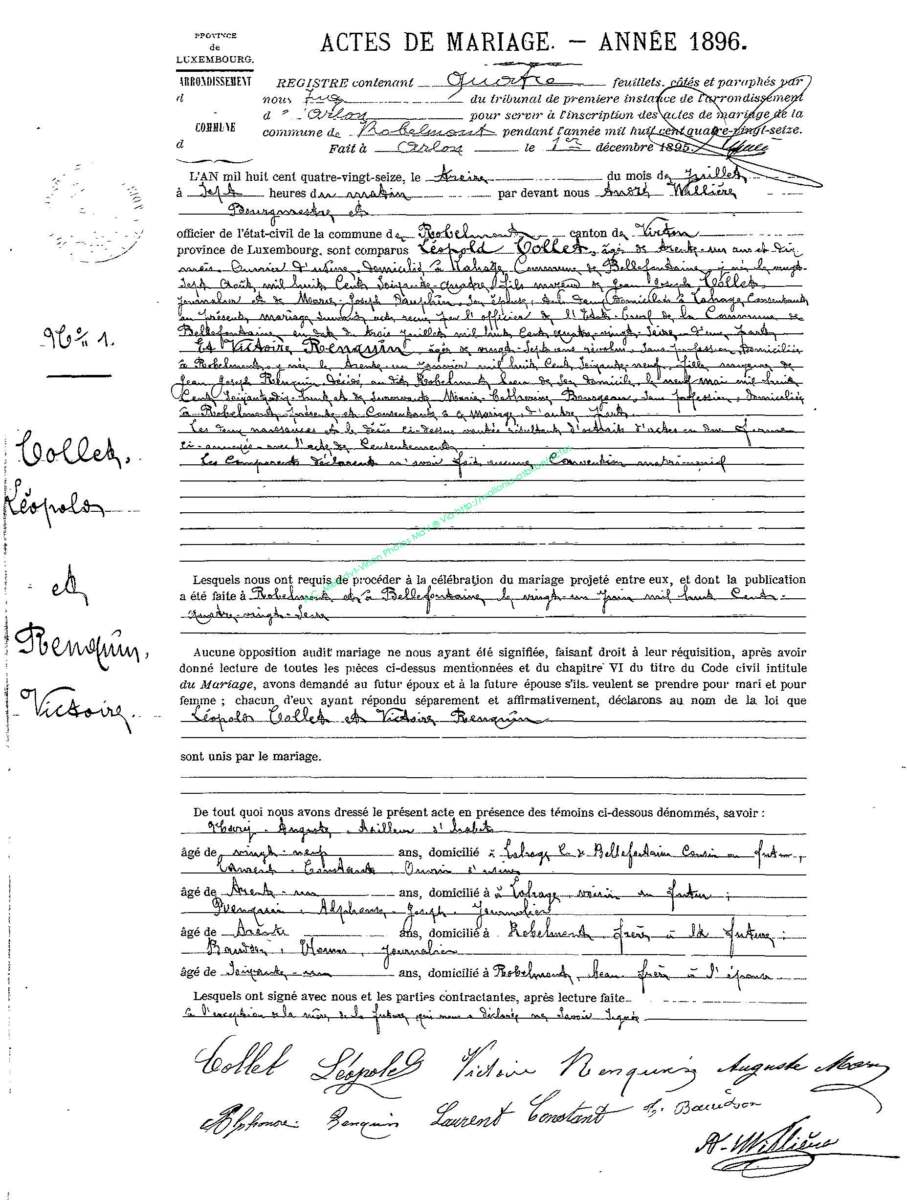 PROVINCE
de
LUXEMBOURG.
ARRONDISSEMENT
d
COMMUNE
d
ACTES DE MARIAGE. — ANNÉE 1896.
REGISTRE contenant Quatre feuillets, côtés et paraphés par
nous Juge du tribunal de premiere instance de l'arrondissement
d' Arlon pour servir à l'inscription des actes de mariage de la
commune de Robelmont pendant l'année mil huit cent quatre-vingt-seize.
Fait à Arlon le 1er décembre 1895.
L'AN mil huit cent quatre-vingt-seize, le treize du mois de Juillet
à sept heures du matin par devant nous André Willière
Bourgmestre et
officier de l'état-civil de la commune de Robelmont canton de Virton
province de Luxembourg, sont comparus Léopold Collet, âgé de trente-un ans et dix
mois, Ouvrier d'usine, domicilié à Lahage Commune de Bellefontaine, né le vingt
sept Août mil huit Cent Soixante-quatre, fils mineur de Jean Joseph Collet,
journalier et de Marie-Joseph Dauphin, son épouse, tous deux domiciliés à Lahage, Consentants
au présent mariage suivant acte reçu par l'officier de l'Etat-Civil de la Commune de
Bellefontaine, en date du trois Juillet mil huit Cent quatre-vingt-seize d'une part
Et Victoire Renquin, âgée de vingt-sept ans révolus, sans profession, Domiciliée
à Robelmont, y née le trente-un Janvier mil huit Cent Soixante-neuf, fille majeure de
Jean Joseph Renquin, décédé au dit Robelmont lieu de son domicile, le neuf mai mil huit
Cent Soixante-dix-huit et de Marie-Catherine Bourgeau, sans profession, domiciliée
à Robelmont, présente et Consentante à ce Mariage, d'autre part.
Les deux naissances et le décès ci-dessus mentionnés résultent d'extraits d'actes en due forme
ci-annexés avec l'acte de Consentement.
Les Comparants déclarent n'avoir fait aucune Convention matrimonial
No 1.
Collet,
Léopold
et
Renquin,
Victoire.
Lesquels nous ont requis de procéder à la célébration du mariage projeté entre eux, et dont la publication
a été faite à Robelmont et à Bellefontaine, le vingt-un Juin mil huit Cent
quatre-vingt-seize
Aucune opposition audit mariage ne nous ayant été signifiée, faisant droit à leur réquisition, après avoir
donné lecture de toutes les pièces ci-dessus mentionnées et du chapitre VI du titre du Code civil intitule
du Mariage, avons demandé au futur époux et à la future épouse s'ils. veulent se prendre pour mari et pour
femme ; chacun d'eux ayant répondu séparement et affirmativement, déclarons au nom de la loi que
Léopold Collet et Victoire Renquin
sont unis par le mariage.
De tout quoi nous avons dressé le présent acte en présence des témoins ci-dessous dénommés, savoir :
Auguste, tailleur d'habits
âgé de vingt-neuf ans, domicilié à Lahage C. de Bellefontaine Cousin au futur,
Laurent, Constant, Ouvrier d'usine
âgé de trente-un ans, domicilié à à Lahage, voisin au futur ;
Renquin, Alphonse-Joseph, Journalier
âgé de trente ans, domicilié à Robelmont, frère à la future ;
journalier
âgé de soixante-un ans, domicilié à Robelmont, beau frère à l'épouse
Lesquels ont signé avec nous et les parties contractantes, après lecture faite
à l'exception de la mère de la future qui nous a déclaré ne savoir signer
Collet Léopold Victoire Renquin Auguste
Alphonse Renquin Laurent Constant
A. Willière